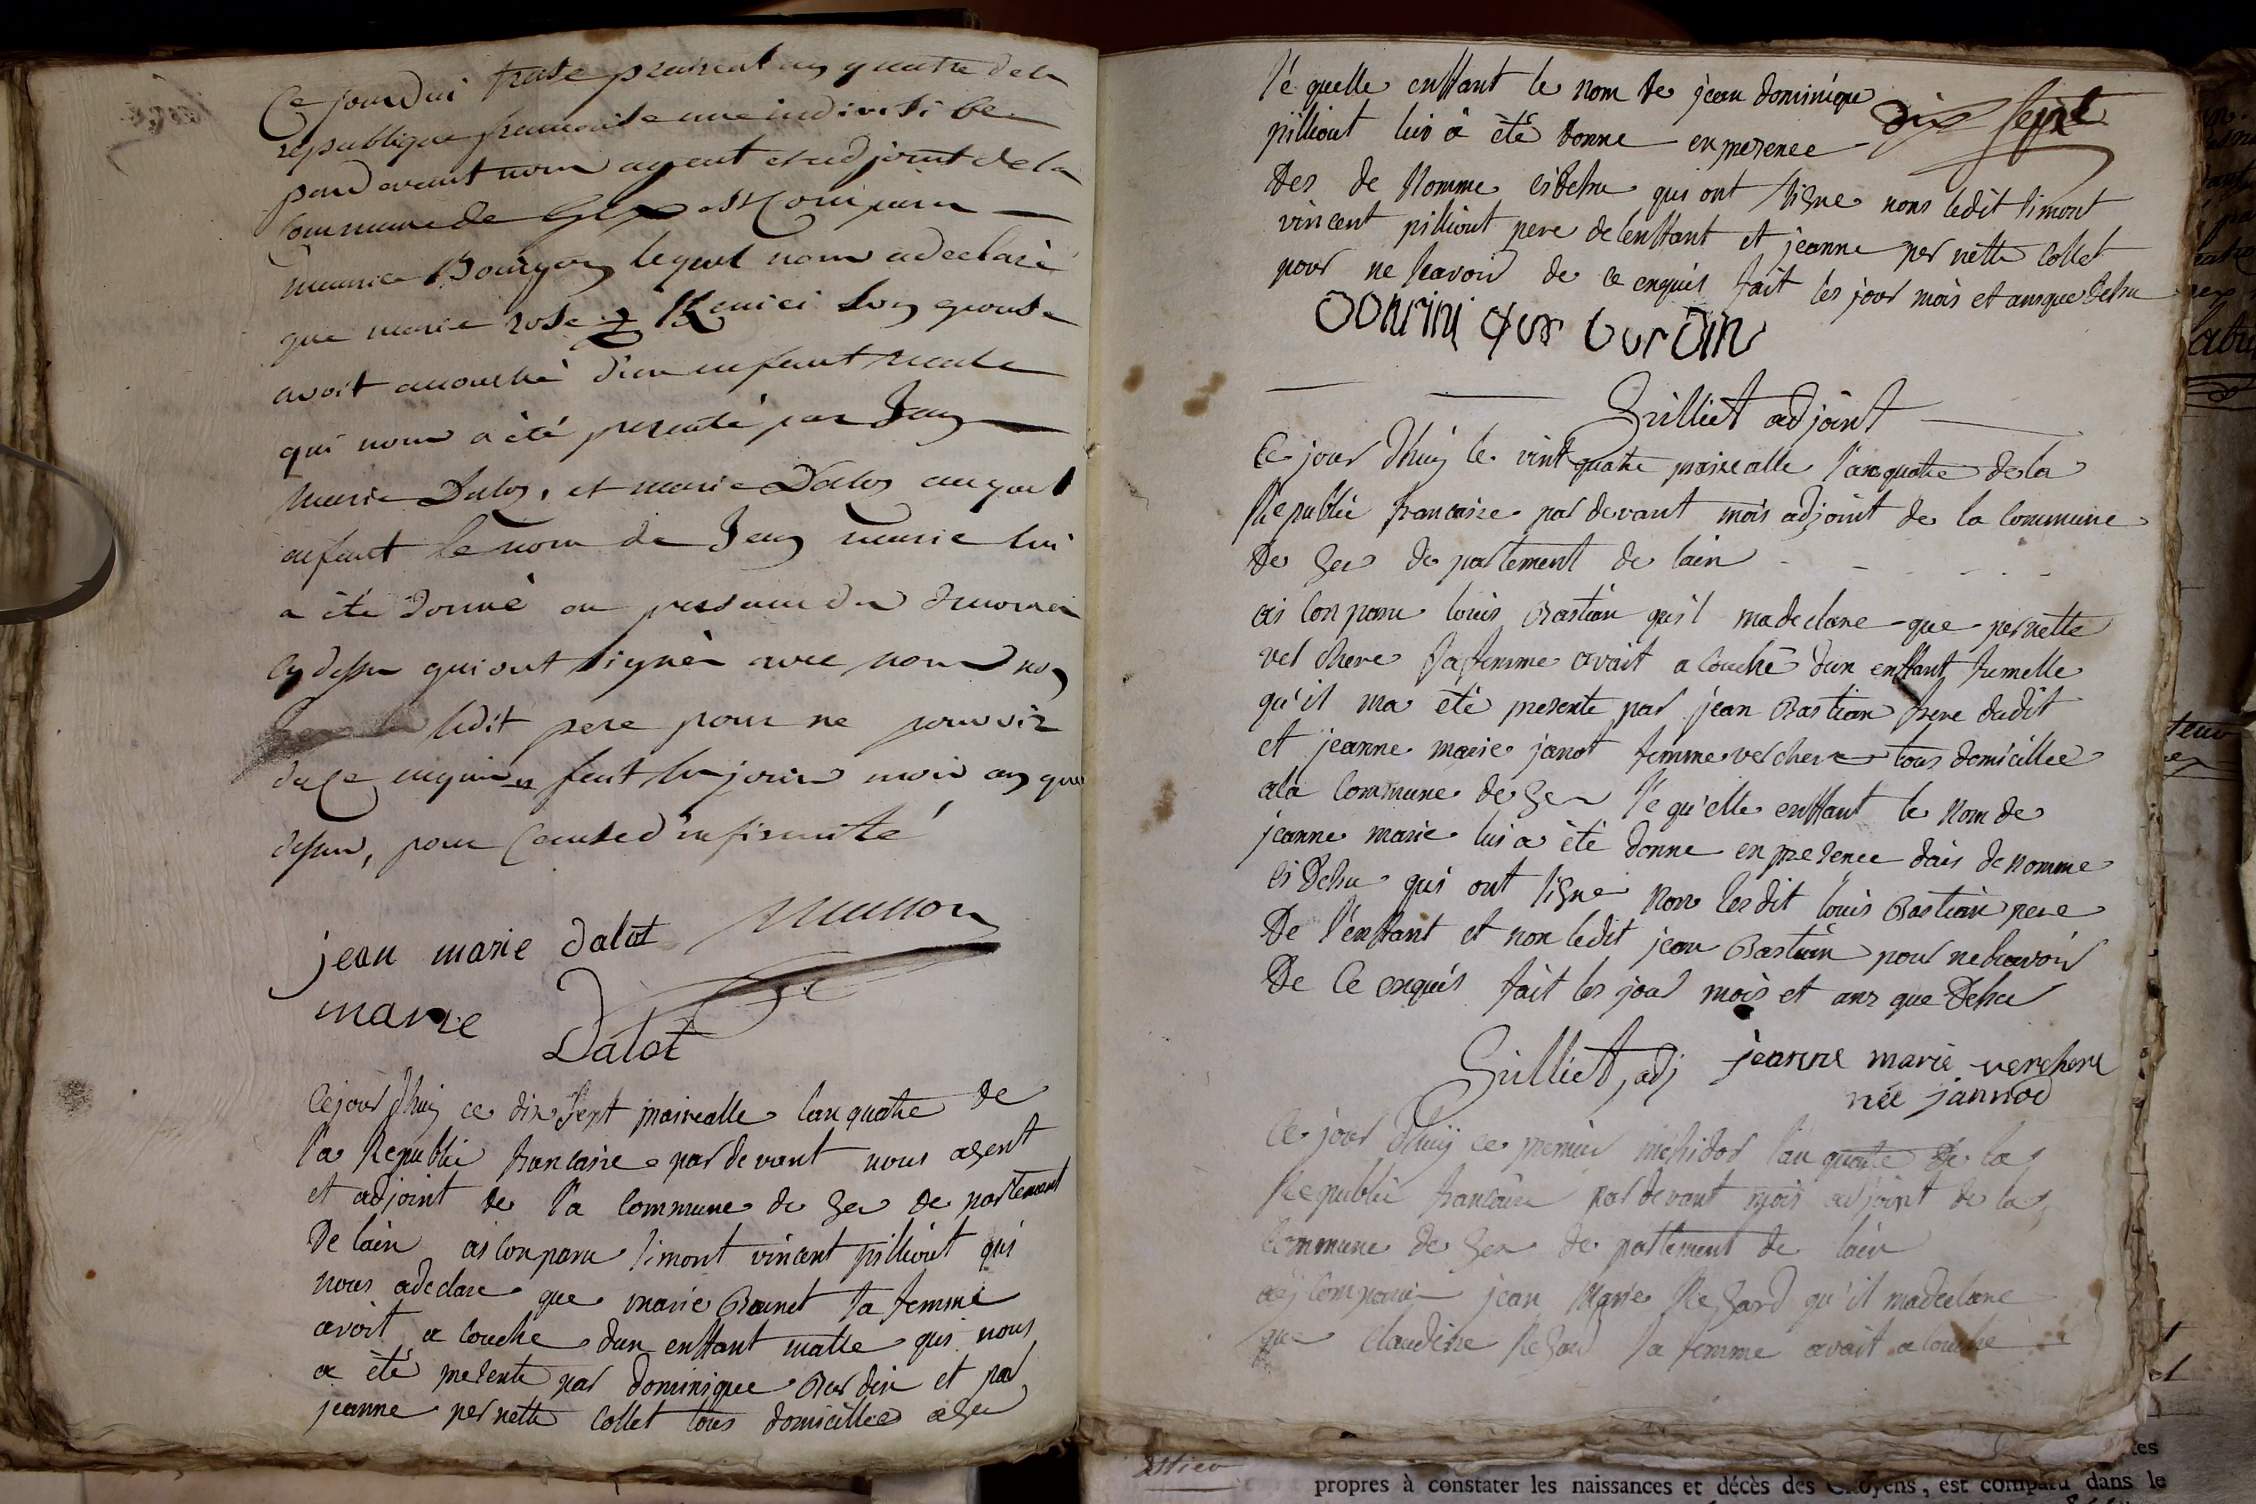 Ce jourdui treise prairial an quatre dela
republique francoise une indivisi ble
pard avant nous agent et adjoint de la
Commune de Gex est Comparu
maurice Bourgon lequel nous a declaré
que marie rose Kenici son epouse
avoit acouché d'un enfant male
qui nous a été presenté par Jean
Marie Dalos, et marie Dalos auquel
enfant le nom de Jean marie lui
a été donné en presence des denomer
cy dessu qui ont signér avec nous non
ledit pere pour ne pouvoir
de ce enquiu fait les jour moi an que
dessu, pour Cause d'infirmité
jean marie dalot
marie
Dalot
Ce jour d'huy ce dix sept prairealle lan quatre de
l'a Republic francaise par devant nous agent
et adjoint de l'a Commune de Gex de partement
De lain ais Conparu simont vincent pilliout qui
nous adeclare que marie Brunet sa femme
avoit a Couche dun enffant malle qui nous
a été presente par dominique Burdin et par
jeanne pernette Collet tous domicillee a Gex
l'é quelle enffant le nom de jean dominique
dix sept
pilliout lui a été donne en presence
Des de Nomme cidesu qui ont signe nons ledit simont
vincent pilliout pere de lenffant et jeanne per nette Collet
pour ne scavoir de ce enquis fait les jour mois et ansque desu
dominique burdin
Grilliet adjoint
Ce jour d'huy le vint quatre prairealle l'an quatre de la
Republic francaise par devant mois adjoint de la Commune
De Gex de partement de lain
ais Conparu louis Bastian quil madeclare que pernette
vel chere sa femme avait a Couché dun enffant fumelle
qu'il ma été presente par jean Bastian frere dudit
et jeanne marie janot femme velchere tous domicillee
ala Commune de Gex l'e qu'elle enffant le Nom de
jeanne marie lui a été donne en presence dais denomme
ci Desu qui ont signe Non ledit louis Bastian pere
De l'enffant et non ledit jean Bastian pour ne scavoir
De Ce enquis fait les jour mois et ans que Desu
Grilliet, adj jeanne marie verchere
née jannod
Ce jour d'huy ce premier mesidor l'an quatre de la
Republic francaise par devant mois adjoint de la
Commune de Gex de partement de lain
ais Comparu jean Marie Regard qu'il madeclare
que Claudine Regard sa femme avait a Couche
propres à constater les naissances et décès des Citoyens, est comparu dans le